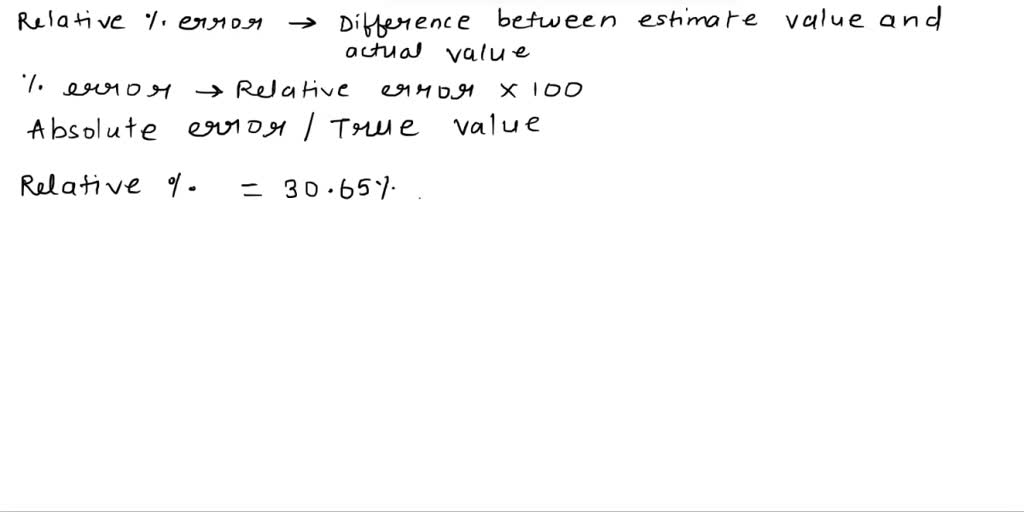 Relative % error → Difference between estimate value and
actual value
% error → Relative error × 100
Absolute error / True value
Relative % = 30.65%